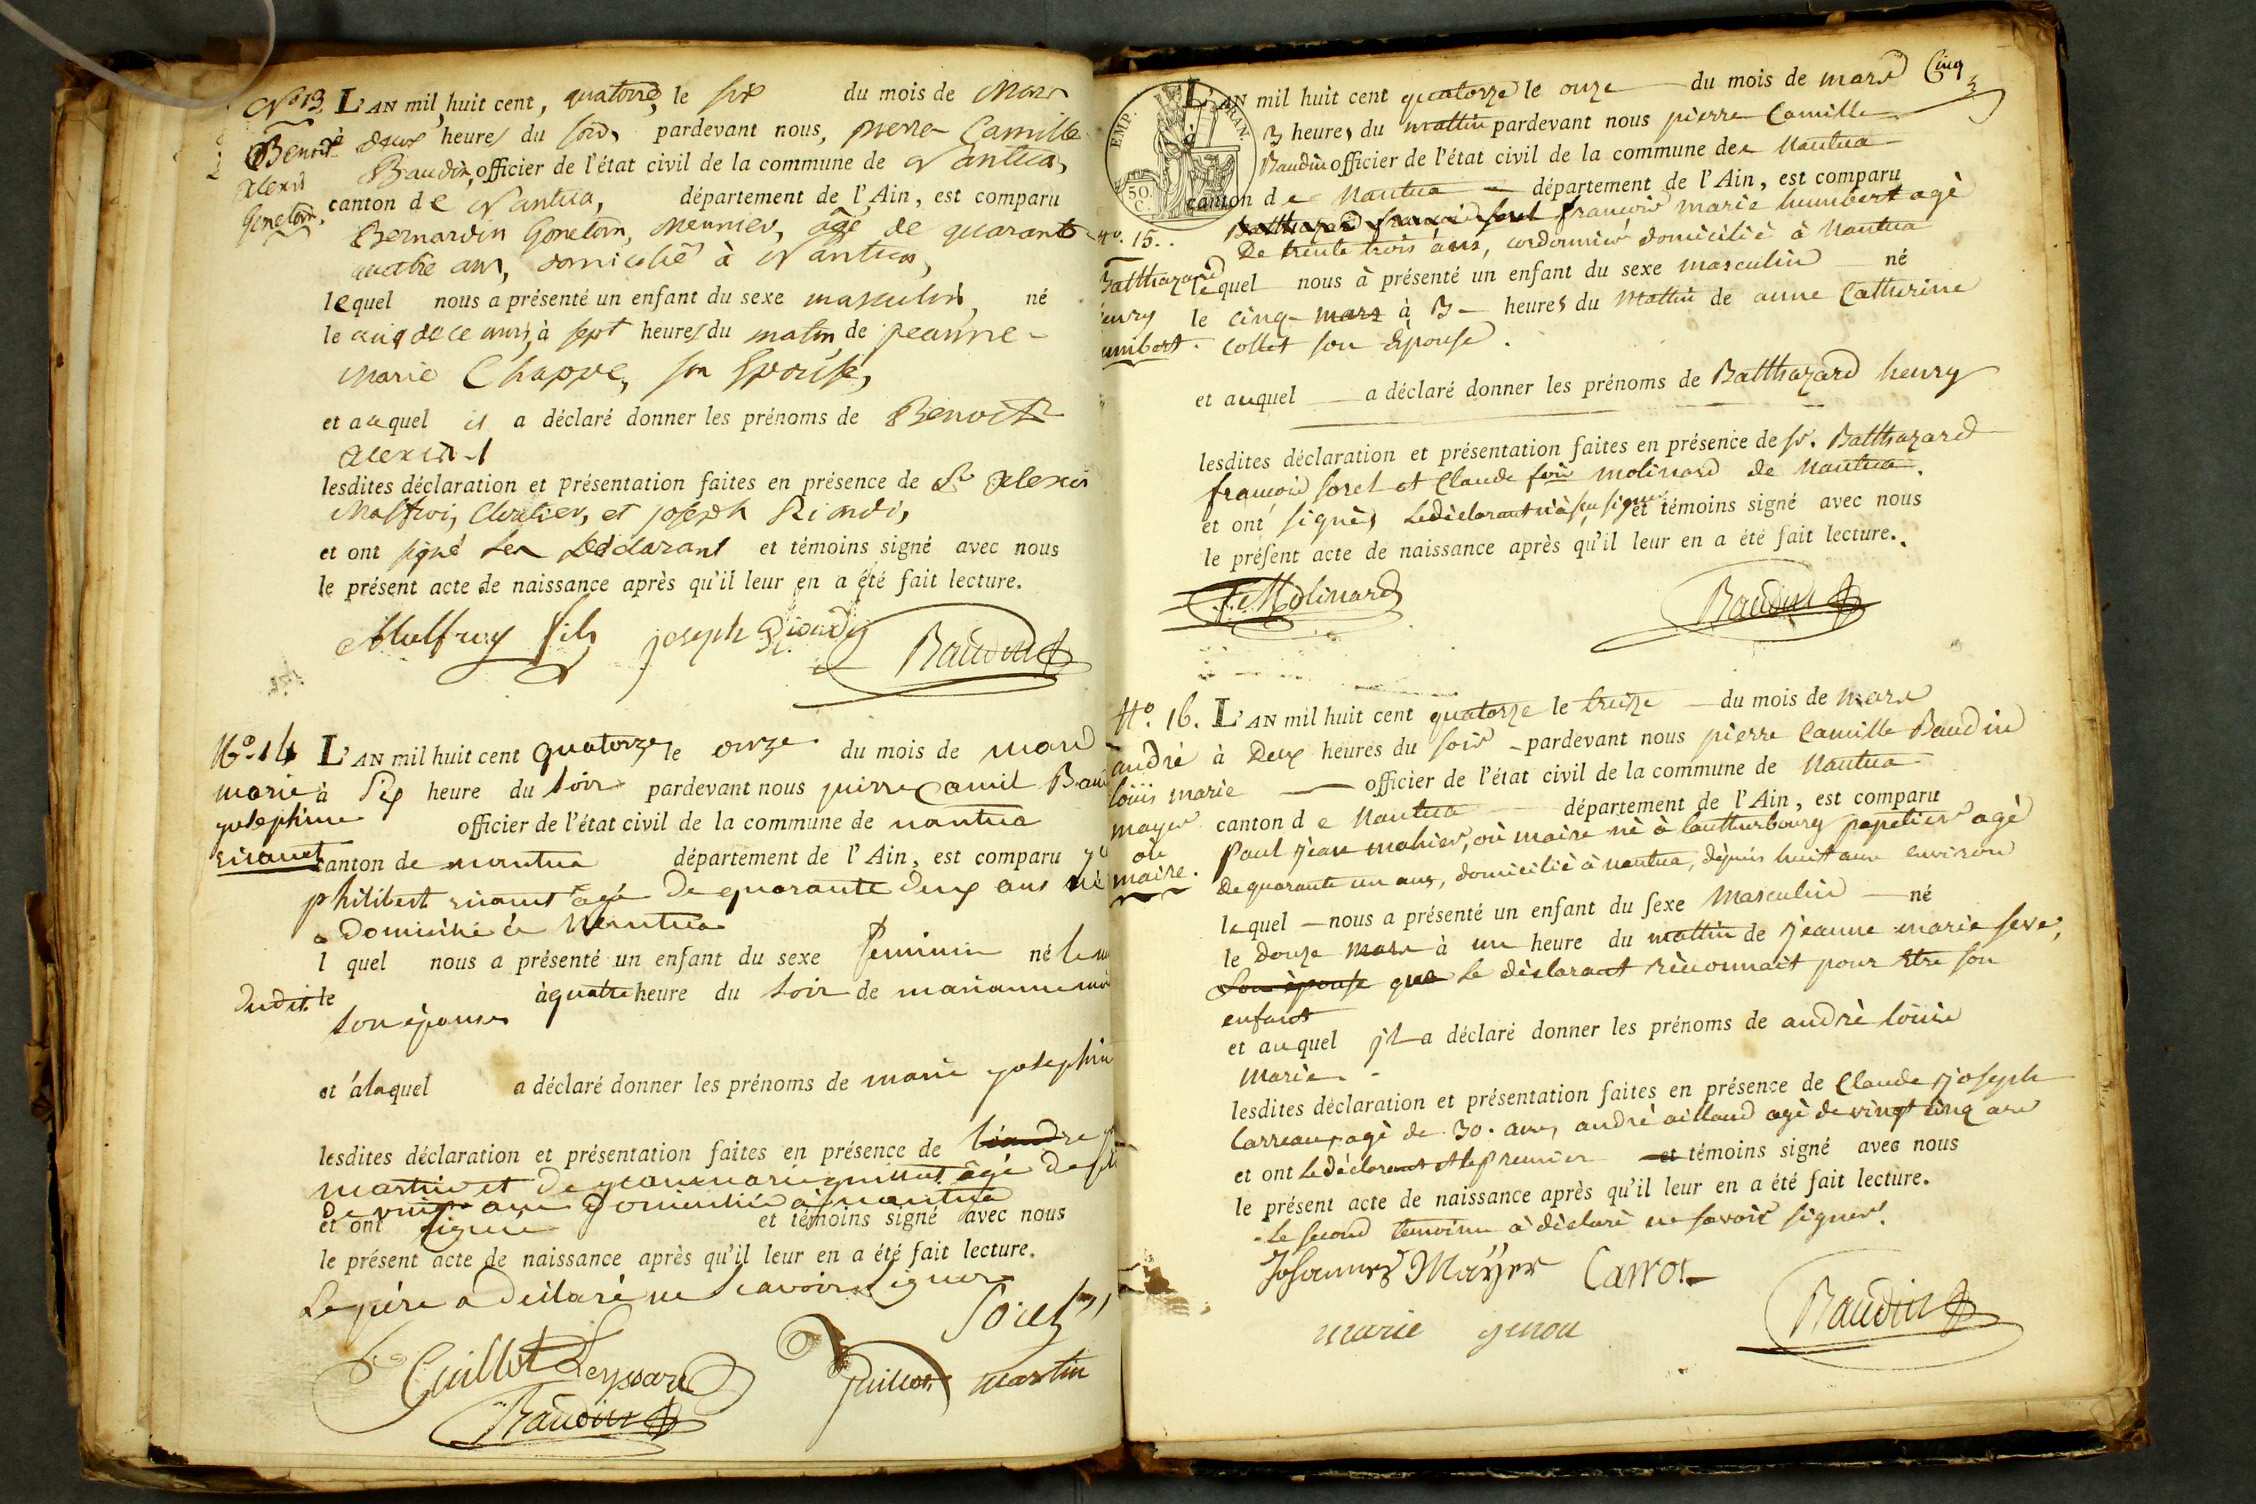 No 13 L'AN mil huit cent, quatorze, le six du mois de Mars
Benoit à deux heures du soir, pardevant nous, pierre Camille
Alexis Baudin, officier de l'état civil de la commune de Nantua,
Goneton. canton de Nantua, département de l'Ain, est comparu
Bernardin Goneton, meunier, âgé de quarante
quatre ans, domicilié à Nantua,
lequel nous a présenté un enfant du sexe masculin, né
le cinq de ce mois, à sept heures du matin, de jeanne
Marie Chappe, son Epouse,
et auquel il a déclaré donner les prénoms de Benoit
alexis
lesdites déclaration et présentation faites en présence de Sr Alexis
et joseph
et ont signé les Déclarant et témoins signé avec nous
le présent acte de naissance après qu'il leur en a été fait lecture.
Malfroy fils joseph Baudin
No. 14 L'AN mil huit cent quatorze le onze du mois de mars
marie à Six heure du soir pardevant nous pierre Camil Bau
josephine officier de l'état civil de la commune de nantua
canton de nantua département de l'Ain, est comparu
philibert agé De quarante deux ans
Domicilié à Nantua
l quel nous a présenté un enfant du sexe feminin né le
Dudit. le à quatre heure du soir de marianne
son épouse
et à laquel a déclaré donner les prénoms de marie josephin
lesdites déclaration et présentation faites en présence de
martin et De
De ans Domicilié à nantua
et ont signé et témoins signé avec nous
le présent acte de naissance après qu'il leur en a été fait lecture.
Le père a déclaré ne scavoir signer
Sorel
Guillot Leyssard Guillot martin
Baudin
Cinq
EMP. FRAN.
50 C.
L'AN mil huit cent quatorze le onze du mois de mars
à 3 heures du mattin pardevant nous pierre Camille
Baudin officier de l'état civil de la commune de Nantua
canton de Nantua département de l'Ain, est comparu
No. 15. Balthazard françois Sorel françois marie humbert agè
De trente trois ans, cordonnier domicilié à Nantua
Balthazard lequel nous à présenté un enfant du sexe masculin né
enry le cinq mars à 3 heures du Mattin de anne Catherine
umbert. Collet son Epouse.
et auquel a déclaré donner les prénoms de Balthazard henry
lesdites déclaration et présentation faites en présence de sr. Balthazard
françois Sorel et Claude molinard de Nantua.
et ont signès, Le dèclarant n'à sçu signer et témoins signé avec nous
le présent acte de naissance après qu'il leur en a été fait lecture.
Molinard Baudin
No. 16. L'AN mil huit cent quatorze le treize du mois de mars
andré à Deux heures du soir pardevant nous pierre Camille Baudin
loüis marie officier de l'état civil de la commune de Nantua
mayer canton de Nantua département de l'Ain, est comparu
ou Paul jean mahier, où maire nè à lautterbourg papetier agè
maire. de quarante un ans, domiciliè à nantua, dèpuis huit ans environ
lequel nous a présenté un enfant du sexe Masculin né
le douze mars à un heure du mattin de jeanne marie seve,
Son èpouse que le dèclarant rèconnait pour être son
enfant
et auquel jl a déclaré donner les prénoms de andrè loüis
Marie.
lesdites déclaration et présentation faites en présence de Claude joseph
Carreau, agè de 30. ans, andrè aillaud agè de vingt cinq ans
et ont Le déclarant et le premier et témoins signé avec nous
le présent acte de naissance après qu'il leur en a été fait lecture.
Le second temoins à dèclarè ne savoir signer.
Johannes Mayer Carrot
marie Baudin